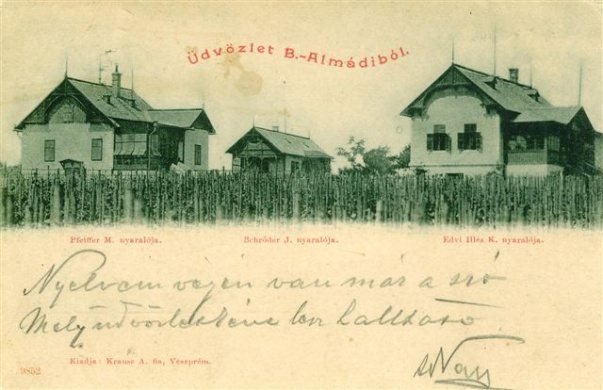 Üdvözlet B.-Almádiból.
Pfeiffer M. nyaralója.
Schröder J. nyaralója.
Edvi Illés K. nyaralója.
Nyelvem végén van már a szó
Mely üdvözletként lesz hallható
Kiadja: Krausz A. fia, Veszprém.
9852